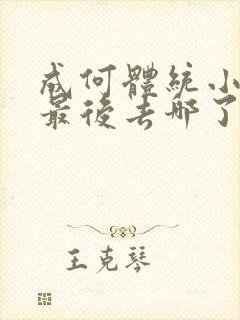 成何體統小
最後去哪了
王克琴